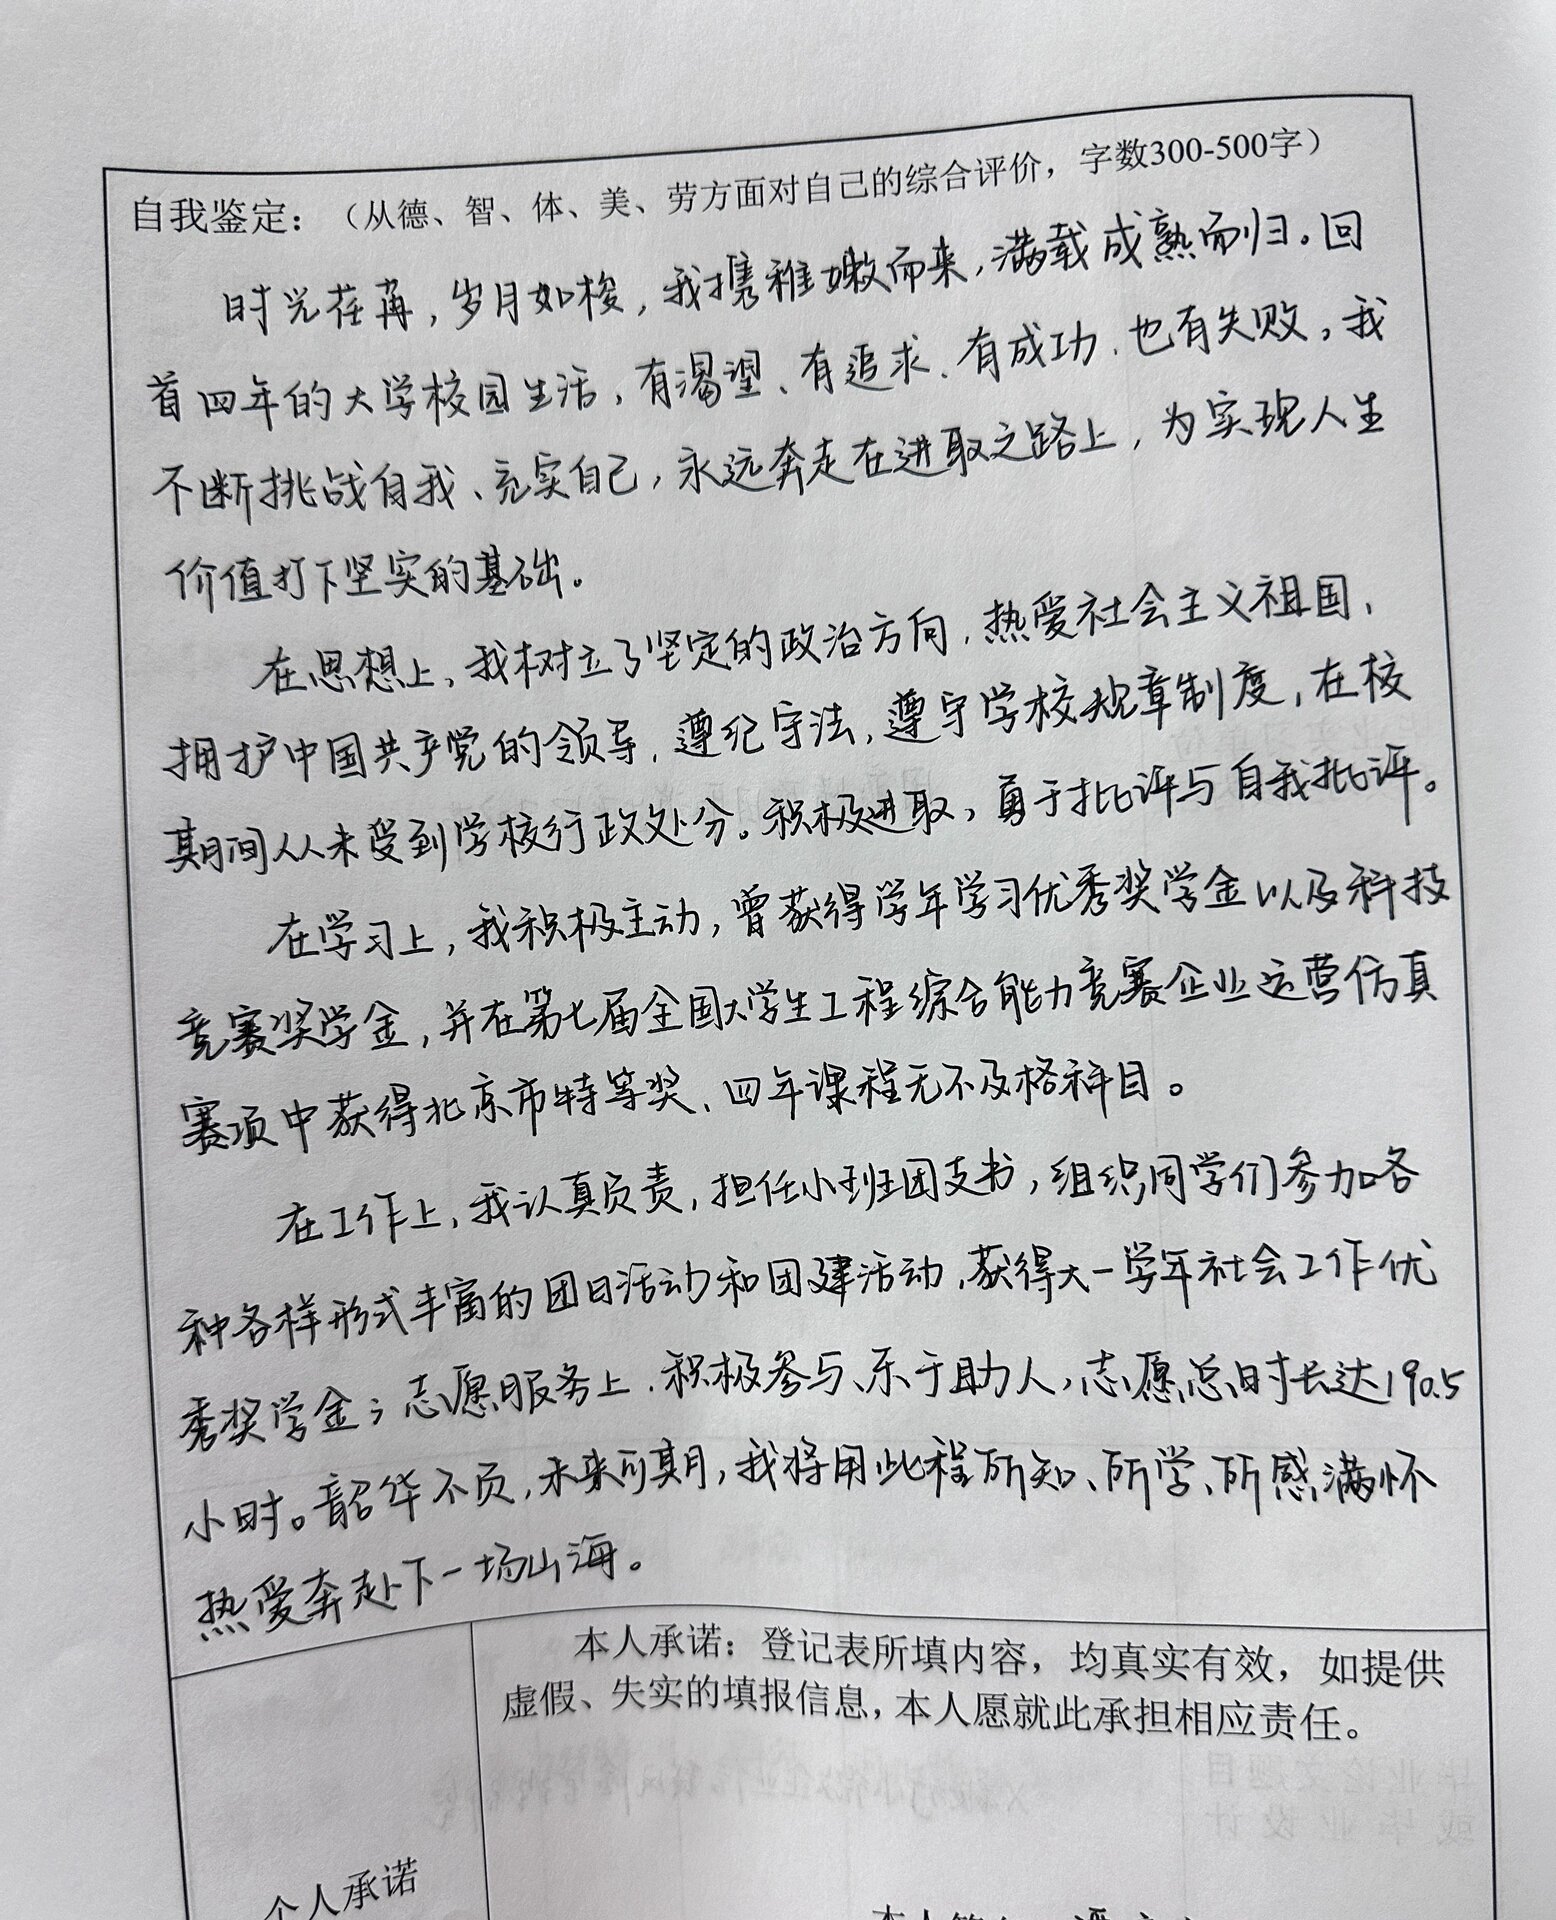 自我鉴定：（从德、智、体、美、劳方面对自己的综合评价，字数300-500字）
时光荏苒，岁月如梭，我携稚嫩而来，满载成熟而归。回
首四年的大学校园生活，有渴望、有追求、有成功、也有失败。我
不断挑战自我、充实自己，永远奔走在进取之路上，为实现人生
价值打下坚实的基础。
在思想上，我树立了坚定的政治方向，热爱社会主义祖国，
拥护中国共产党的领导，遵纪守法，遵守学校规章制度，在校
期间从未受到学校行政处分。积极进取，勇于批评与自我批评。
在学习上，我积极主动，曾获得学年学习优秀奖学金以及科技
竞赛奖学金，并在第七届全国大学生工程综合能力竞赛企业运营仿真
赛项中获得北京市特等奖、四年课程无不及格科目。
在工作上，我认真负责，担任小班团支书，组织同学们参加各
种各样形式丰富的团日活动和团建活动，获得大一学年社会工作优
秀奖学金；志愿服务上，积极参与、乐于助人，志愿总时长达190.5
小时。韶华不负，未来可期，我将用此程所知、所学、所感满怀
热爱奔赴下一场山海。
本人承诺：登记表所填内容，均真实有效，如提供
虚假、失实的填报信息，本人愿就此承担相应责任。
个人承诺